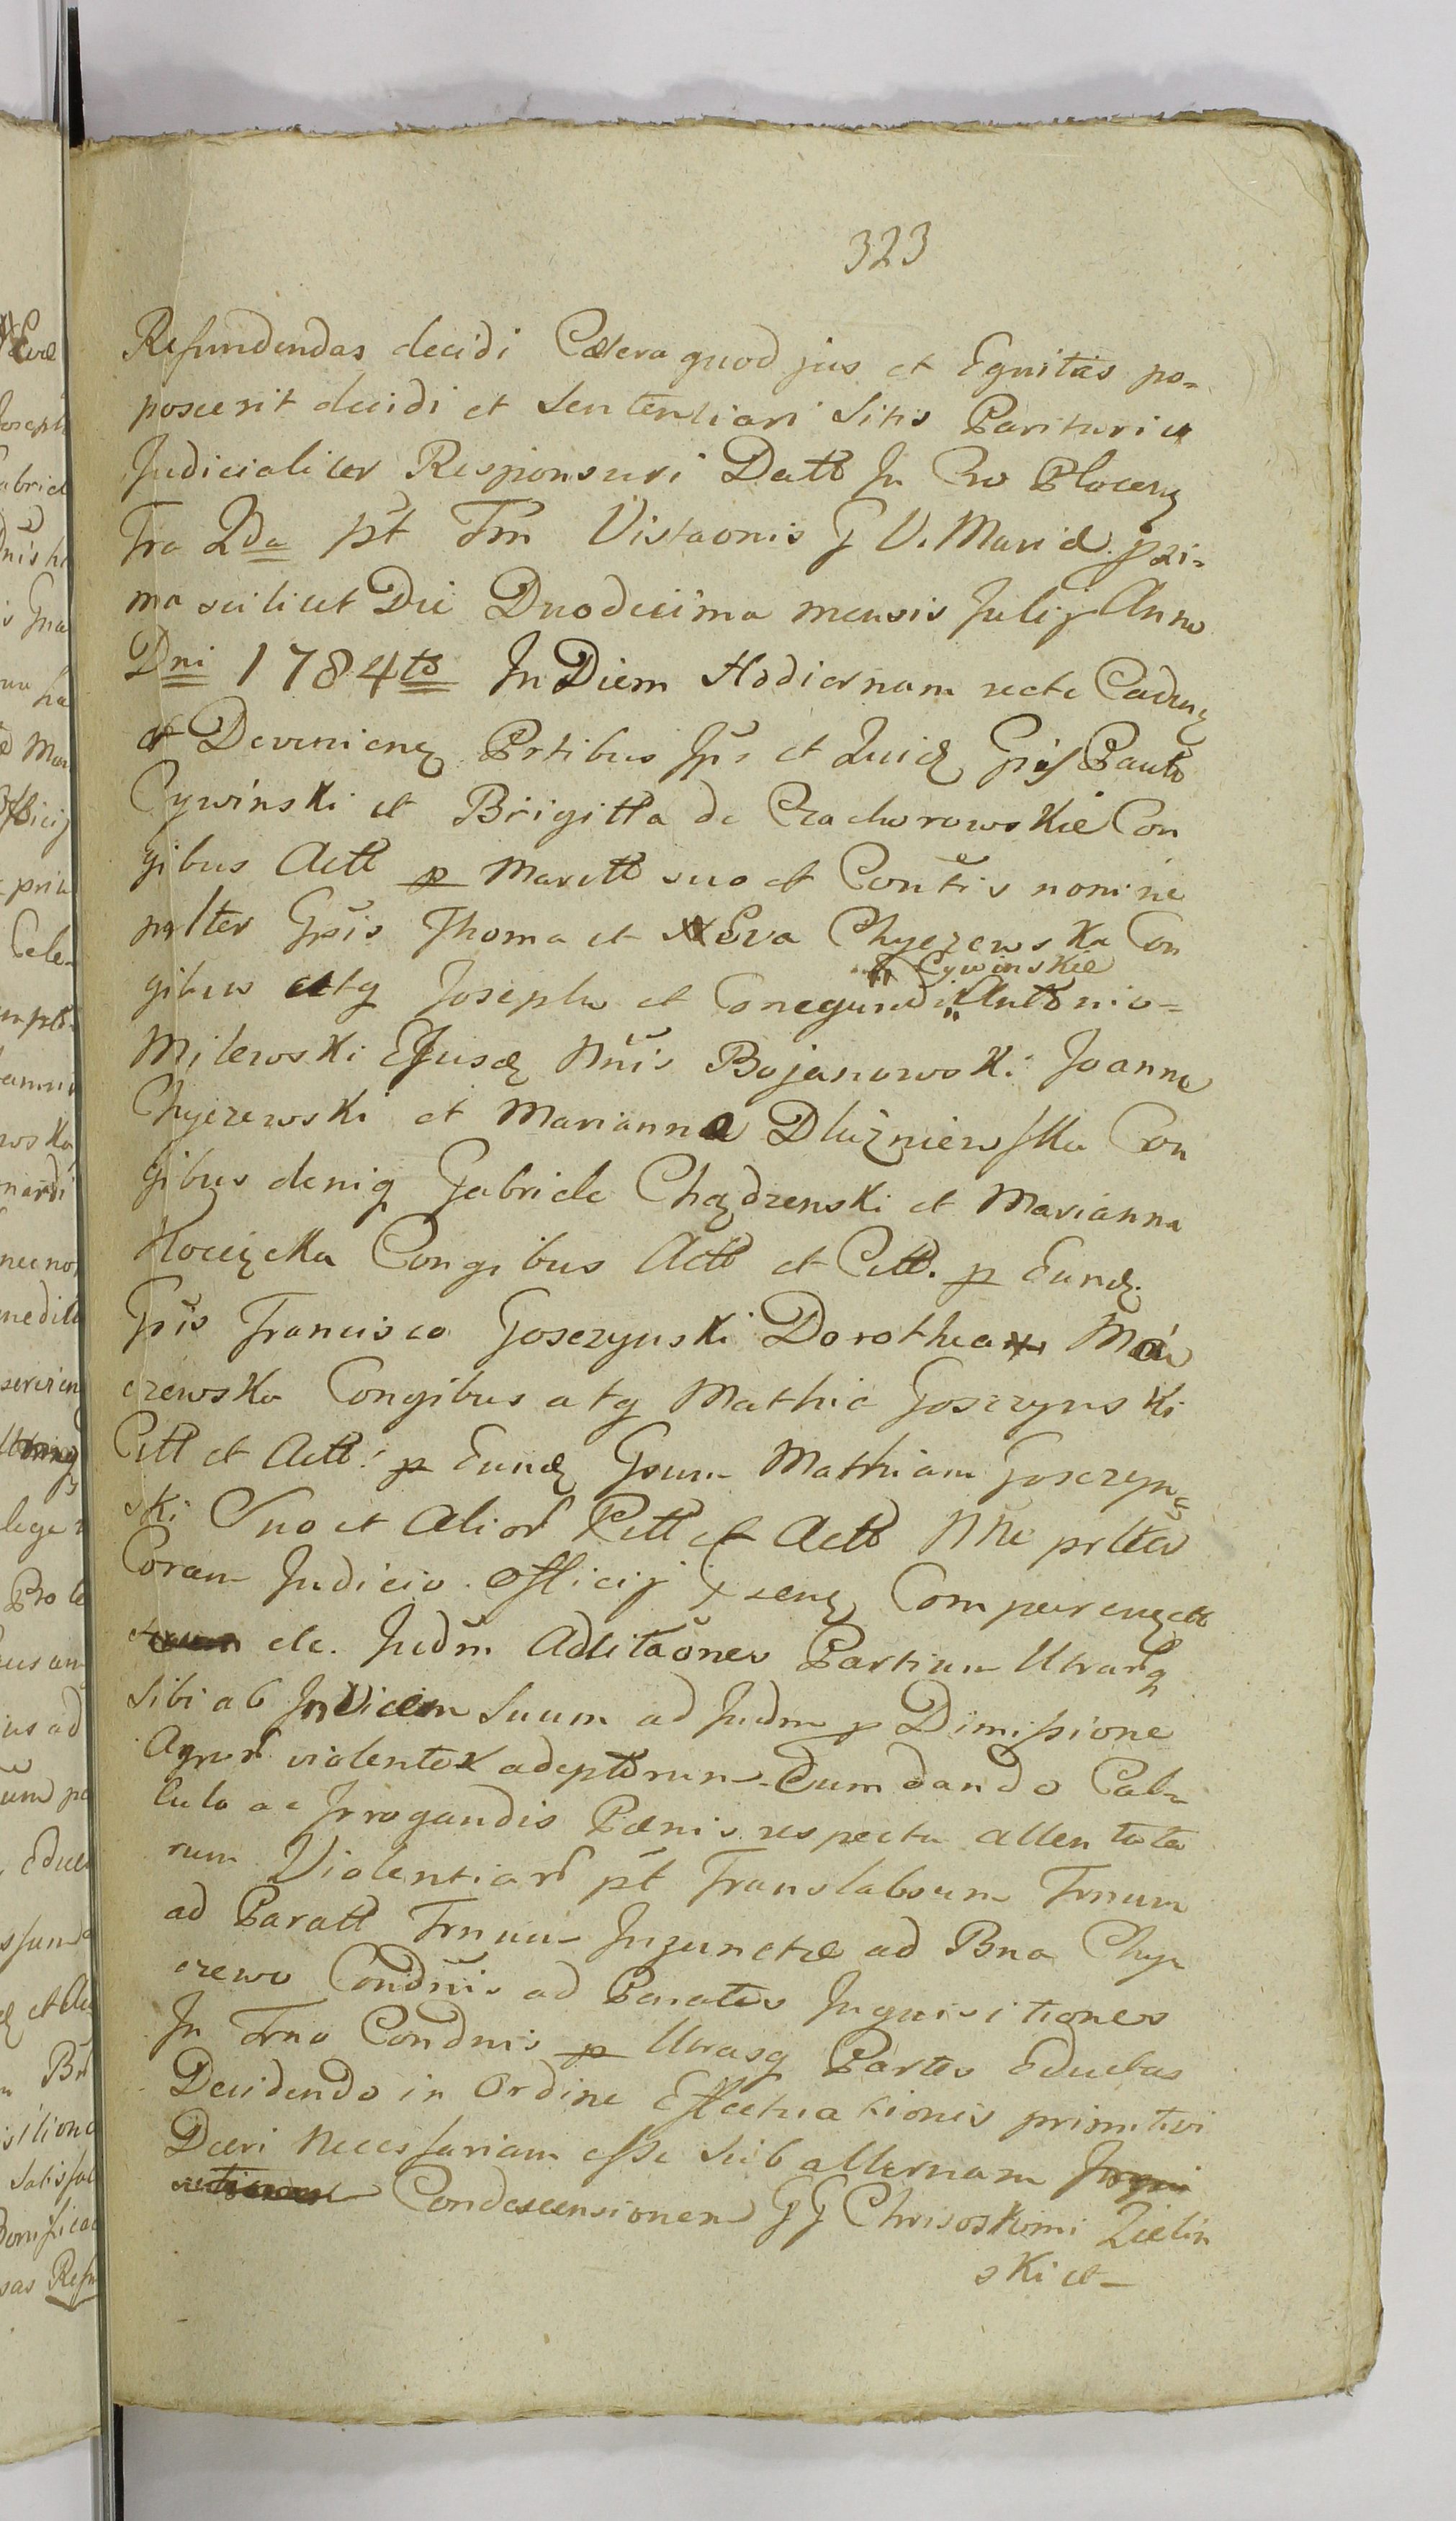 323
Refundendas decidi Cætera quod jus et Equitas po-
poscerit decidi et Sententiari Sitis Parituri et
Judicialiter Responsuri Datt In Cro Plocens
Fra 2da pt Fm Vistaonis G V. Mariæ pri-
ma scilicet Die Duodecima mensis Julij Anno
Dni 1784to In Diem Hodiernam recte Caden
et Devenien Prtibus Ips et Gnis Paulo
Cywinski et Brigitta de Czachorowskie Con
gibus Actt p Maritt suo et Contis nomine
prlter Gsis Thoma et Eva Chyczewska Con
gibus atq Josepho et Conegundi Antonio=
Cywinskie
Milewski Ejusd Nnis Bojanowski Joanne
Chyczewski et Marianna Dłużniewska Con
gibus deniq Gabriele Chądzenski et Marianna
Kocięcka Congibus Actt et Citt. p Eund.
Gsis Francisco Gosczynski Dorothea Ma
czewska Congibus atq Mathia Gosczynski
Citt et Actt p Eund Gsum Mathiam Gosczyn=
ski Suo et Alior Citt et Actt Nne prlter
Coram Judicio Officij pzen Comparen ett
etc. Judm Adcitaones Partium Utrarq
Sibi ab Invicem Suum ad Judm p Dimissione
Agror violenter adeptorum dum dando Cal-
culo ac Irrogandis Pænis respectu attentata
rum Violentiar pt Translabsum Trnum
ad Paratt Trnum Injunctæ ad Bna Chy-
czewo Condnis ad Paratas Inquisitiones
In Trno Condnis p Utrasq Partes Eductas
Decidendo in Ordine Effectuationis primitivi
Dcri Necessariam esse Subalternam
Condescensionem GG Chrisostomi Zielin
ski et